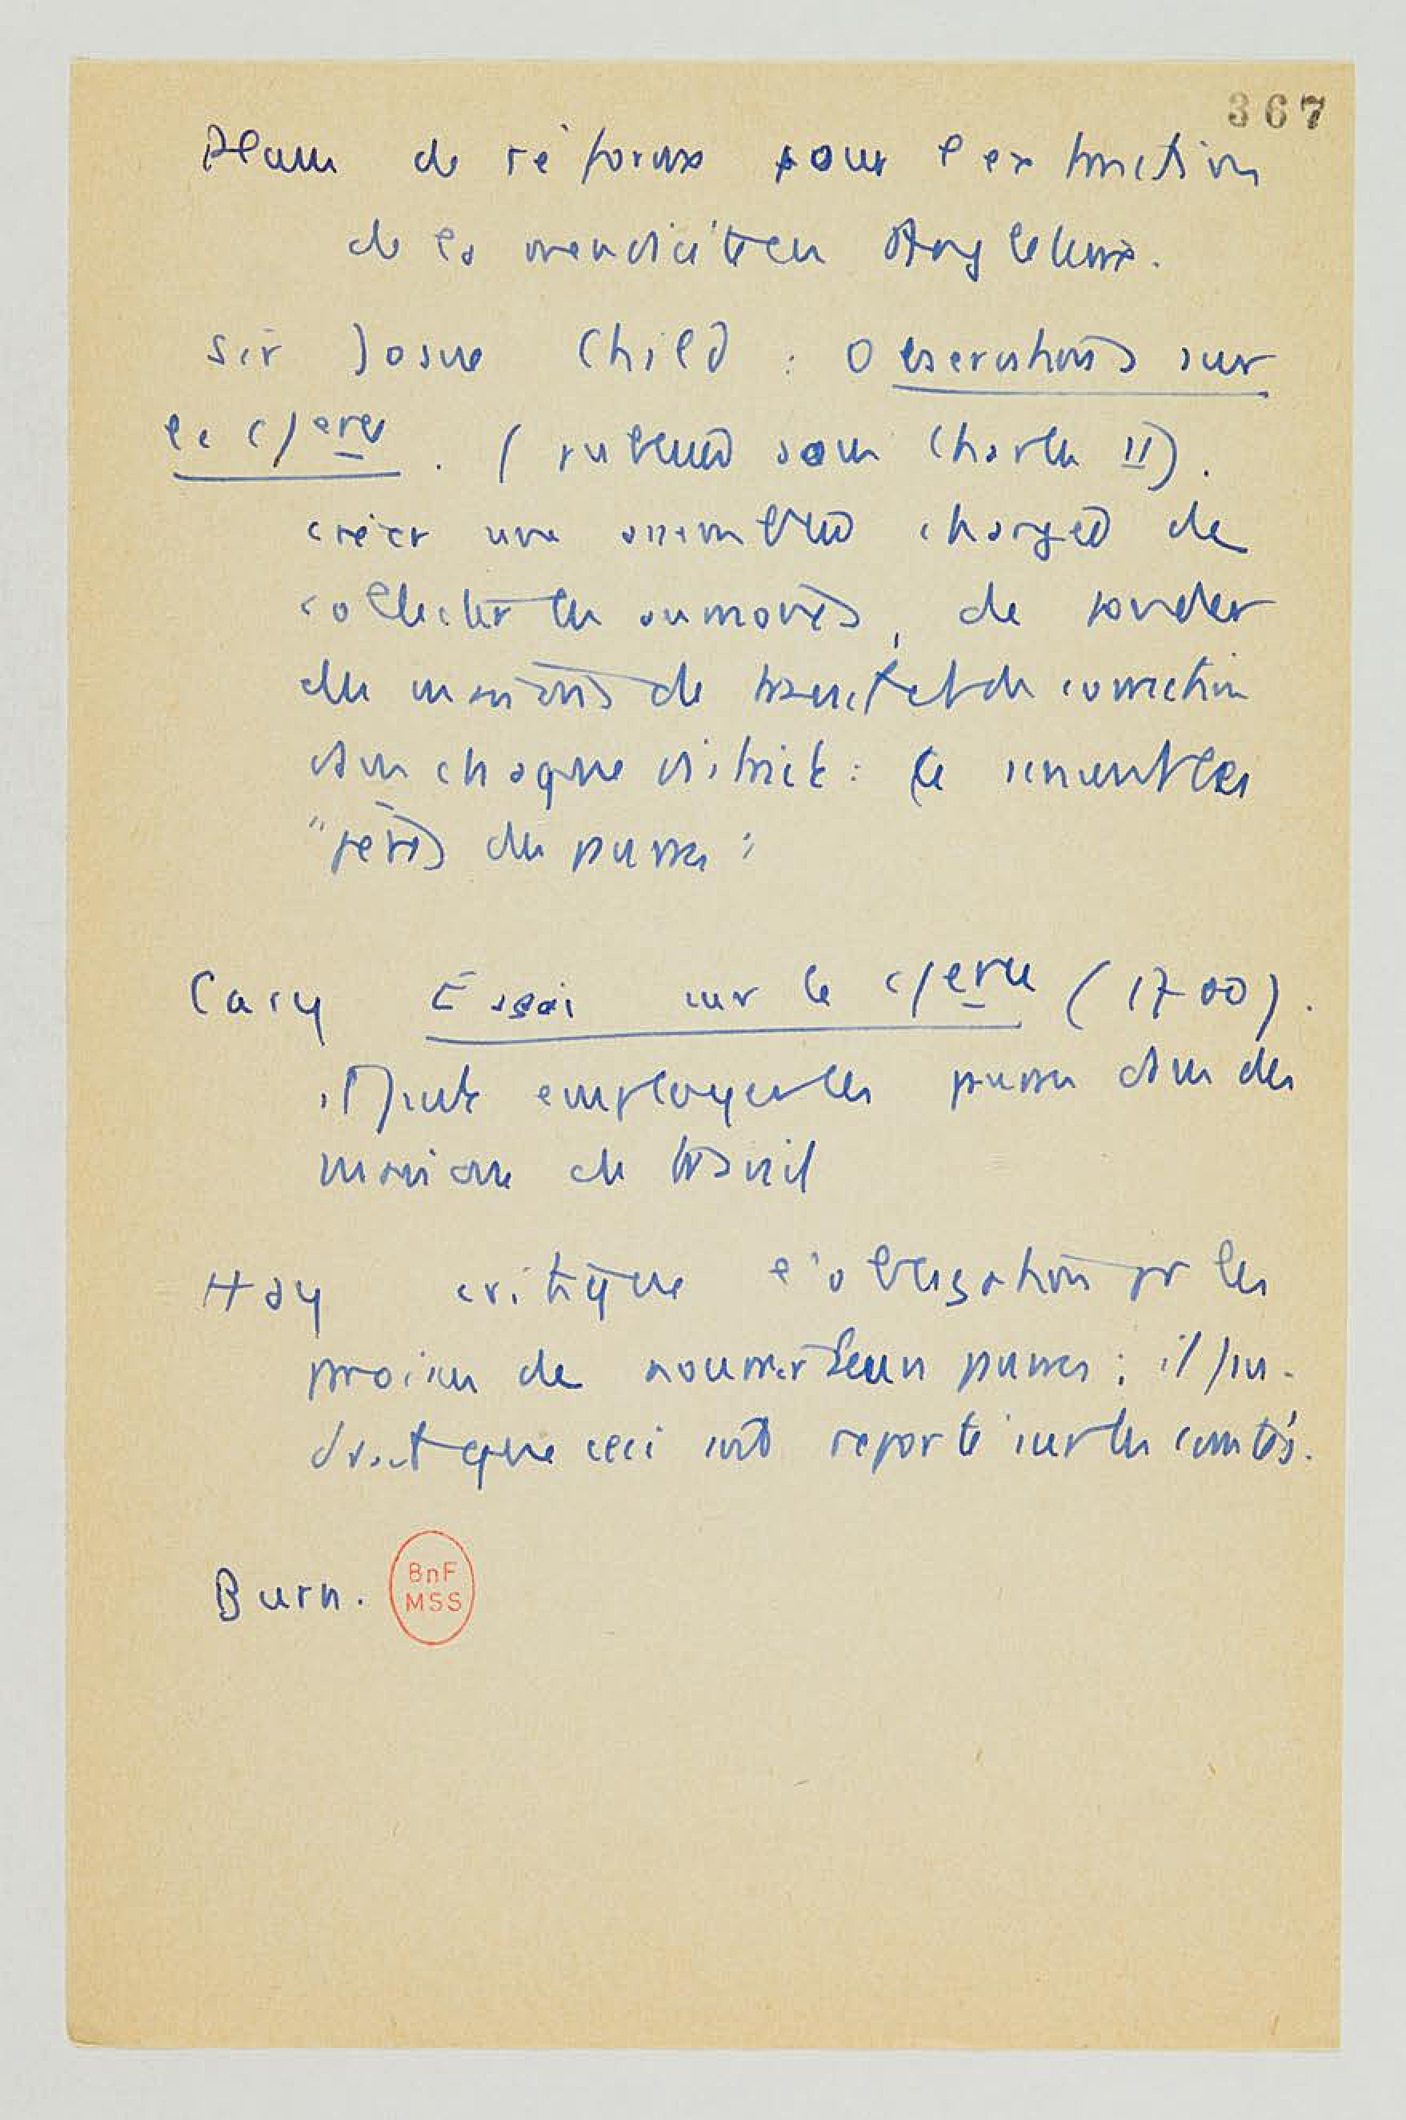 367
Plans de réforme pour l'extinction
de la mendicité en Angleterre.
Sir Josue Child : Observations sur
le c/erce. (publiées sous Charles II).
créer une assemblée chargée de
collecter les aumônes, de fonder
des maisons de travail et de correction
dans chaque district : ce seraient les
"pères des pauvres"
Cary Essai sur le c/erce (1700).
il faut employer les pauvres dans des
maisons de travail
Hay critique l'obligation pr les
paroisses de nourrir leurs pauvres ; il fau-
drait que ceci soit reporté sur les comtés.
Burn.
BnF
MSS